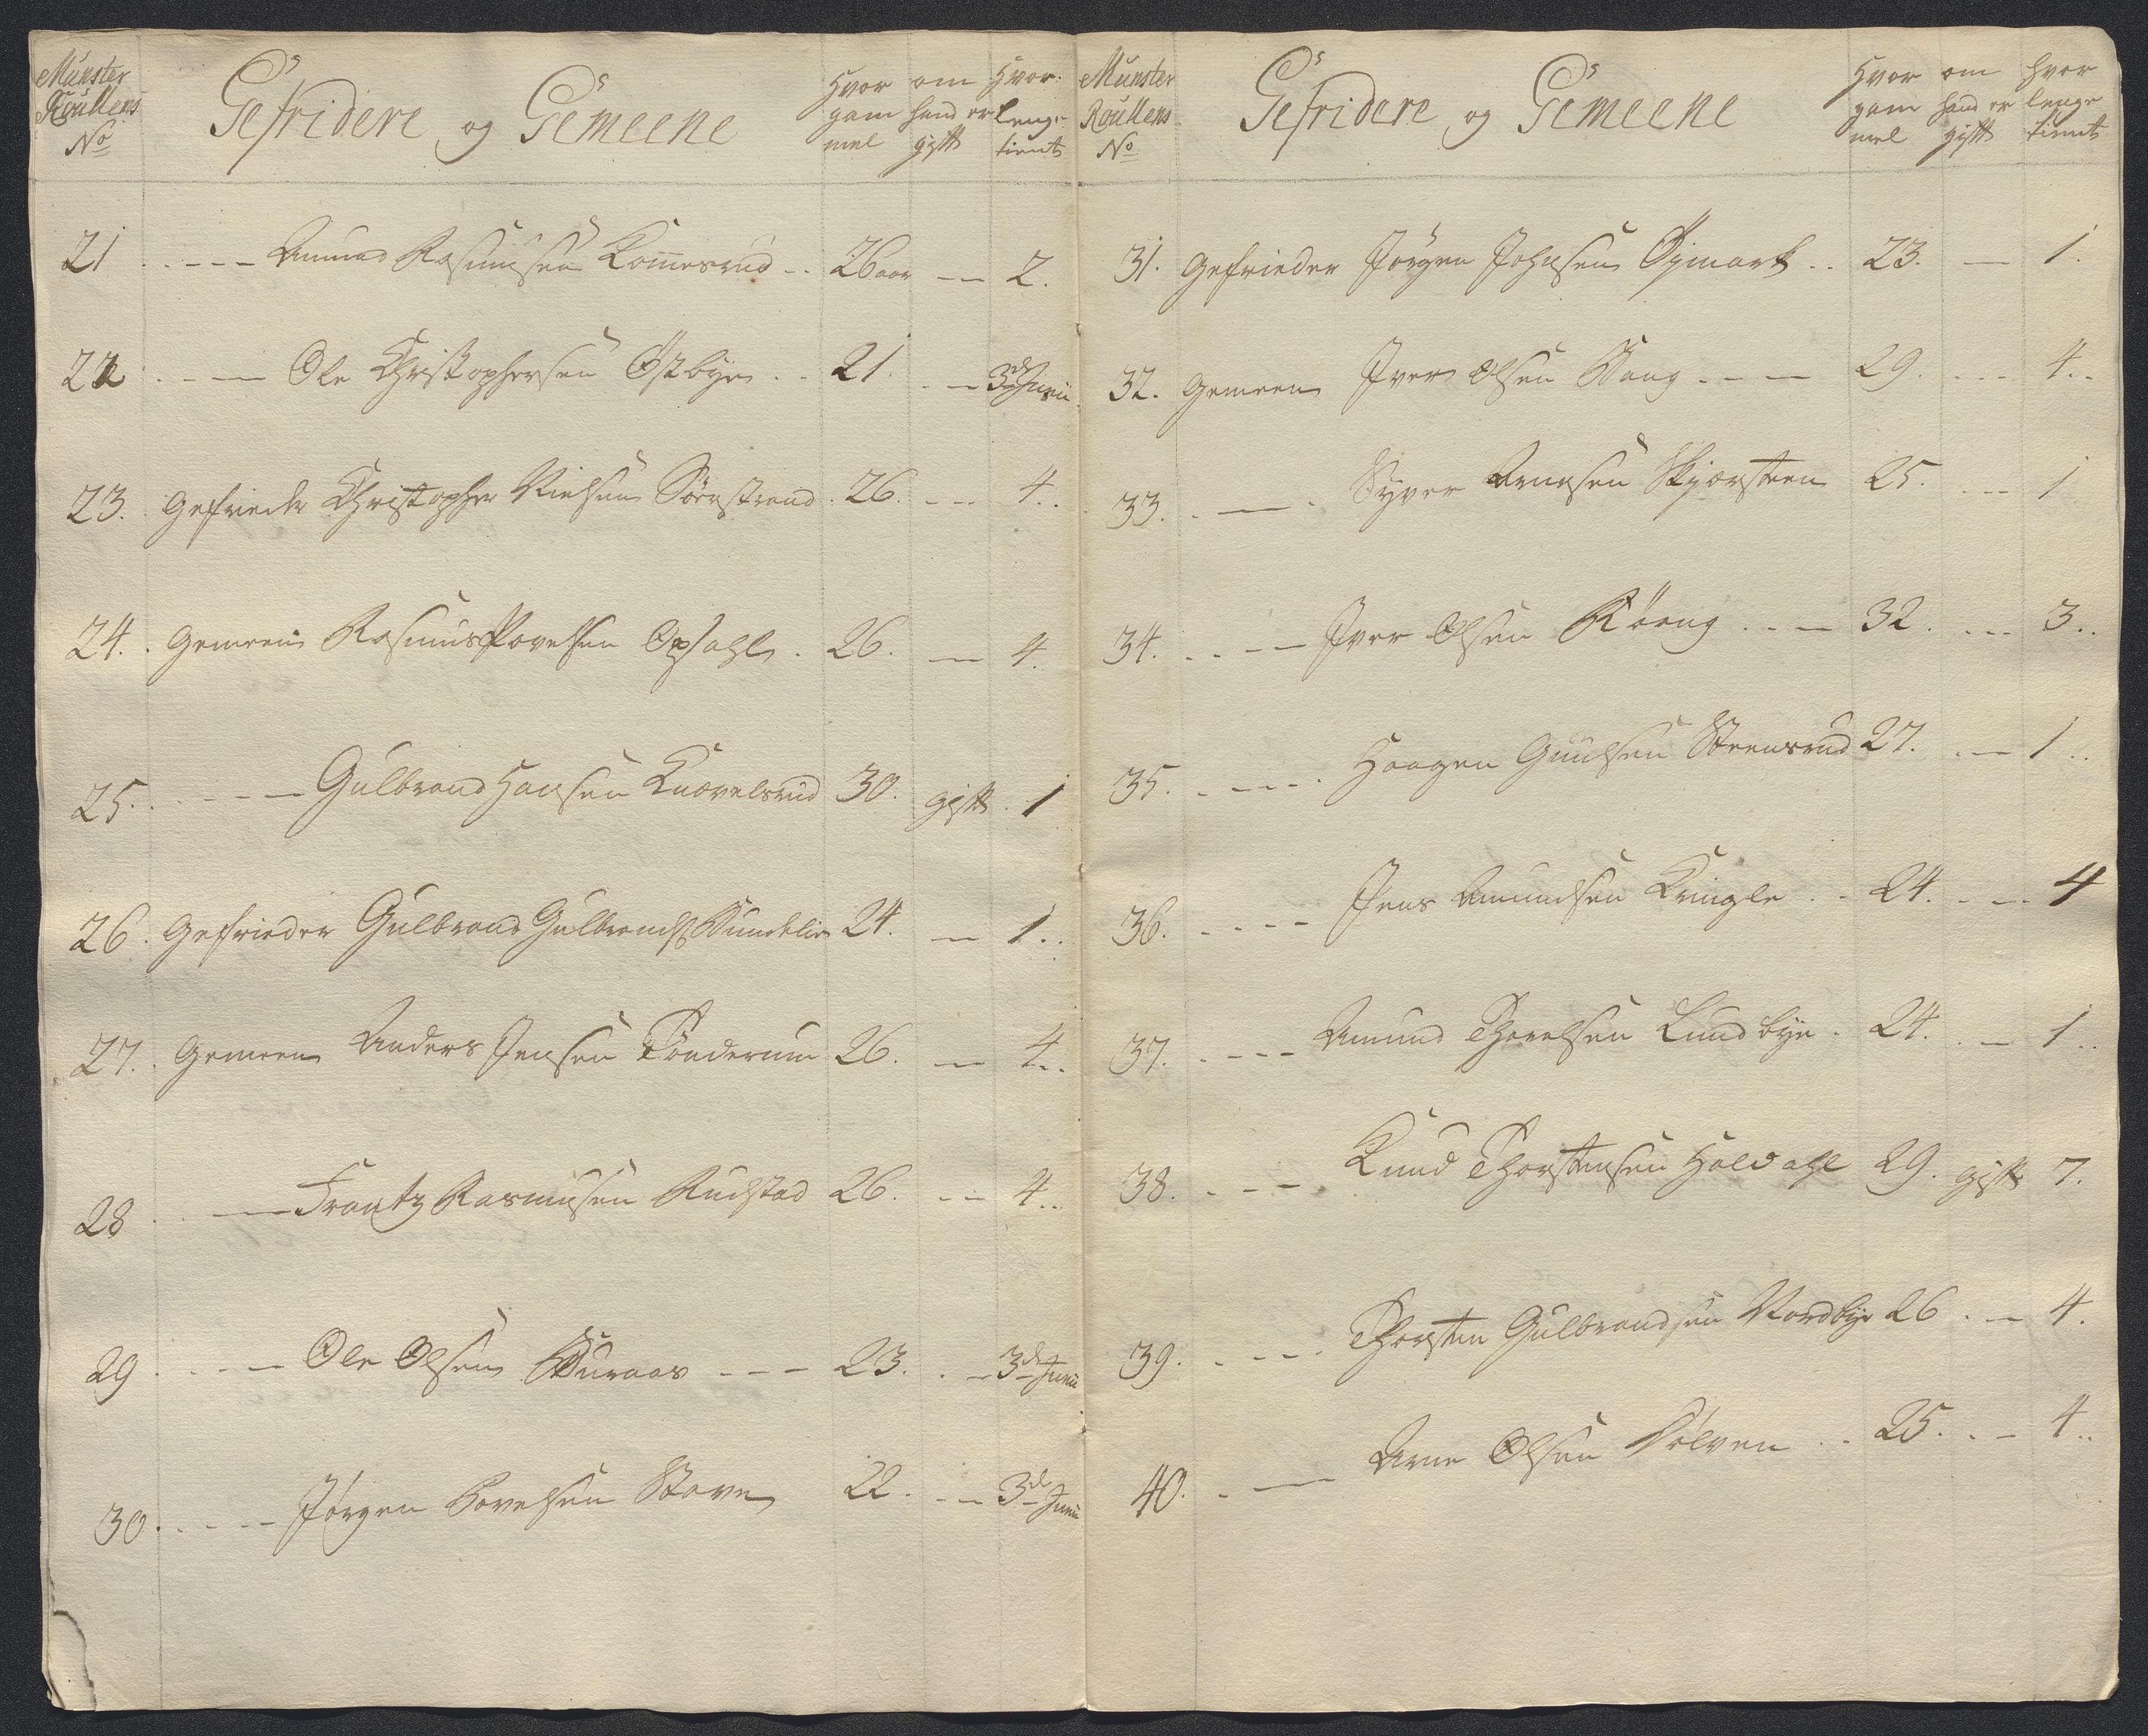 Munster Roullens No
Gefridere og Gemeene
Hvor gam mel
om hand er gift
Hvor lenge tient
21 . . - - - Amund Rasmusen Komesrud . . 26 aar - - 2.
22 . - - Ole Christophersen Østbye . . 21. . - 3de Junii
23. Gefrieder Christopher Nielsen Sørstrand . 26. - - - 4. .
24. . Gemeen Rasmus Povelsen Opsahl . 26. - - 4.
25. . - - - Gulbrand Hansen Knavelsrud 30. gift . 1
26. Gefrieder Gulbrand Gulbrands. Sundelie 24. - 1. .
27. . Gemeen Anders Jensen Tønderum 26. - - 4. .
28 . - - Frantz Rasmusen Rudstad 26. - - 4. .
29 . . - - Ole Olsen Buraas - - - 23. . - 3de Junii
30. . - - - Jørgen Povelsen Staven 22. - - 3de Junii
Munster Roullens No
Gefridere og Gemeene
Hvor gam mel
om hand er gift
hvor lenge tient
31. Gefrieder Jørgen Johnsen Øymark . . 23. - 1.
32. Gemeen Iver Olsen Haug - - - 29. - - - 4. .
33. . - . Syver Arnesen Skjørsteen 25. - - - 1
34. . . - - Iver Olsen Røeng . . - 32. - - - 3. .
35. . - - - . Haagen Gundsen Steensrud 27. . - 1 . .
36. . - - - Jens Amundsen Kringle . . 24. - - - 4
37. . - - - Amund Thorelsen Lundbye . 24. . - 1 . .
38. . - - Knud Thorstensen Holdahl 29. gift 7.
39. . - - - . Thorsten Gulbrandsen Nordbye 26 . - 4.
40. . - Arne Olsen Sølven . . 25. . - 4. .